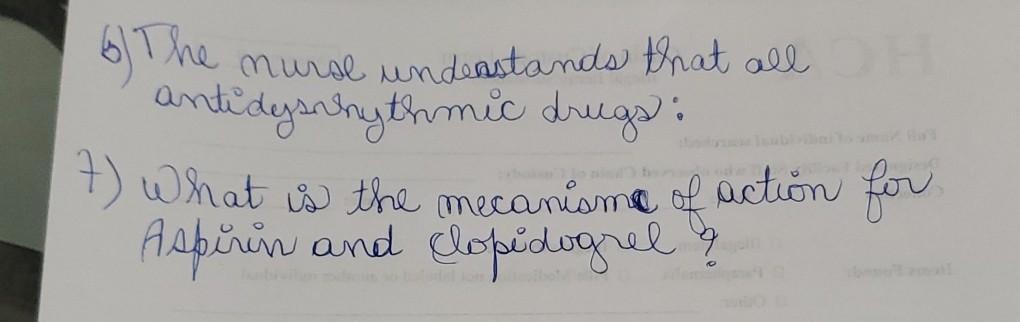 6) The nurse understands that all
antidysrhythmic drugs:
7) What is the mecanisme of action for
Aspirin and Clopidogrel ?